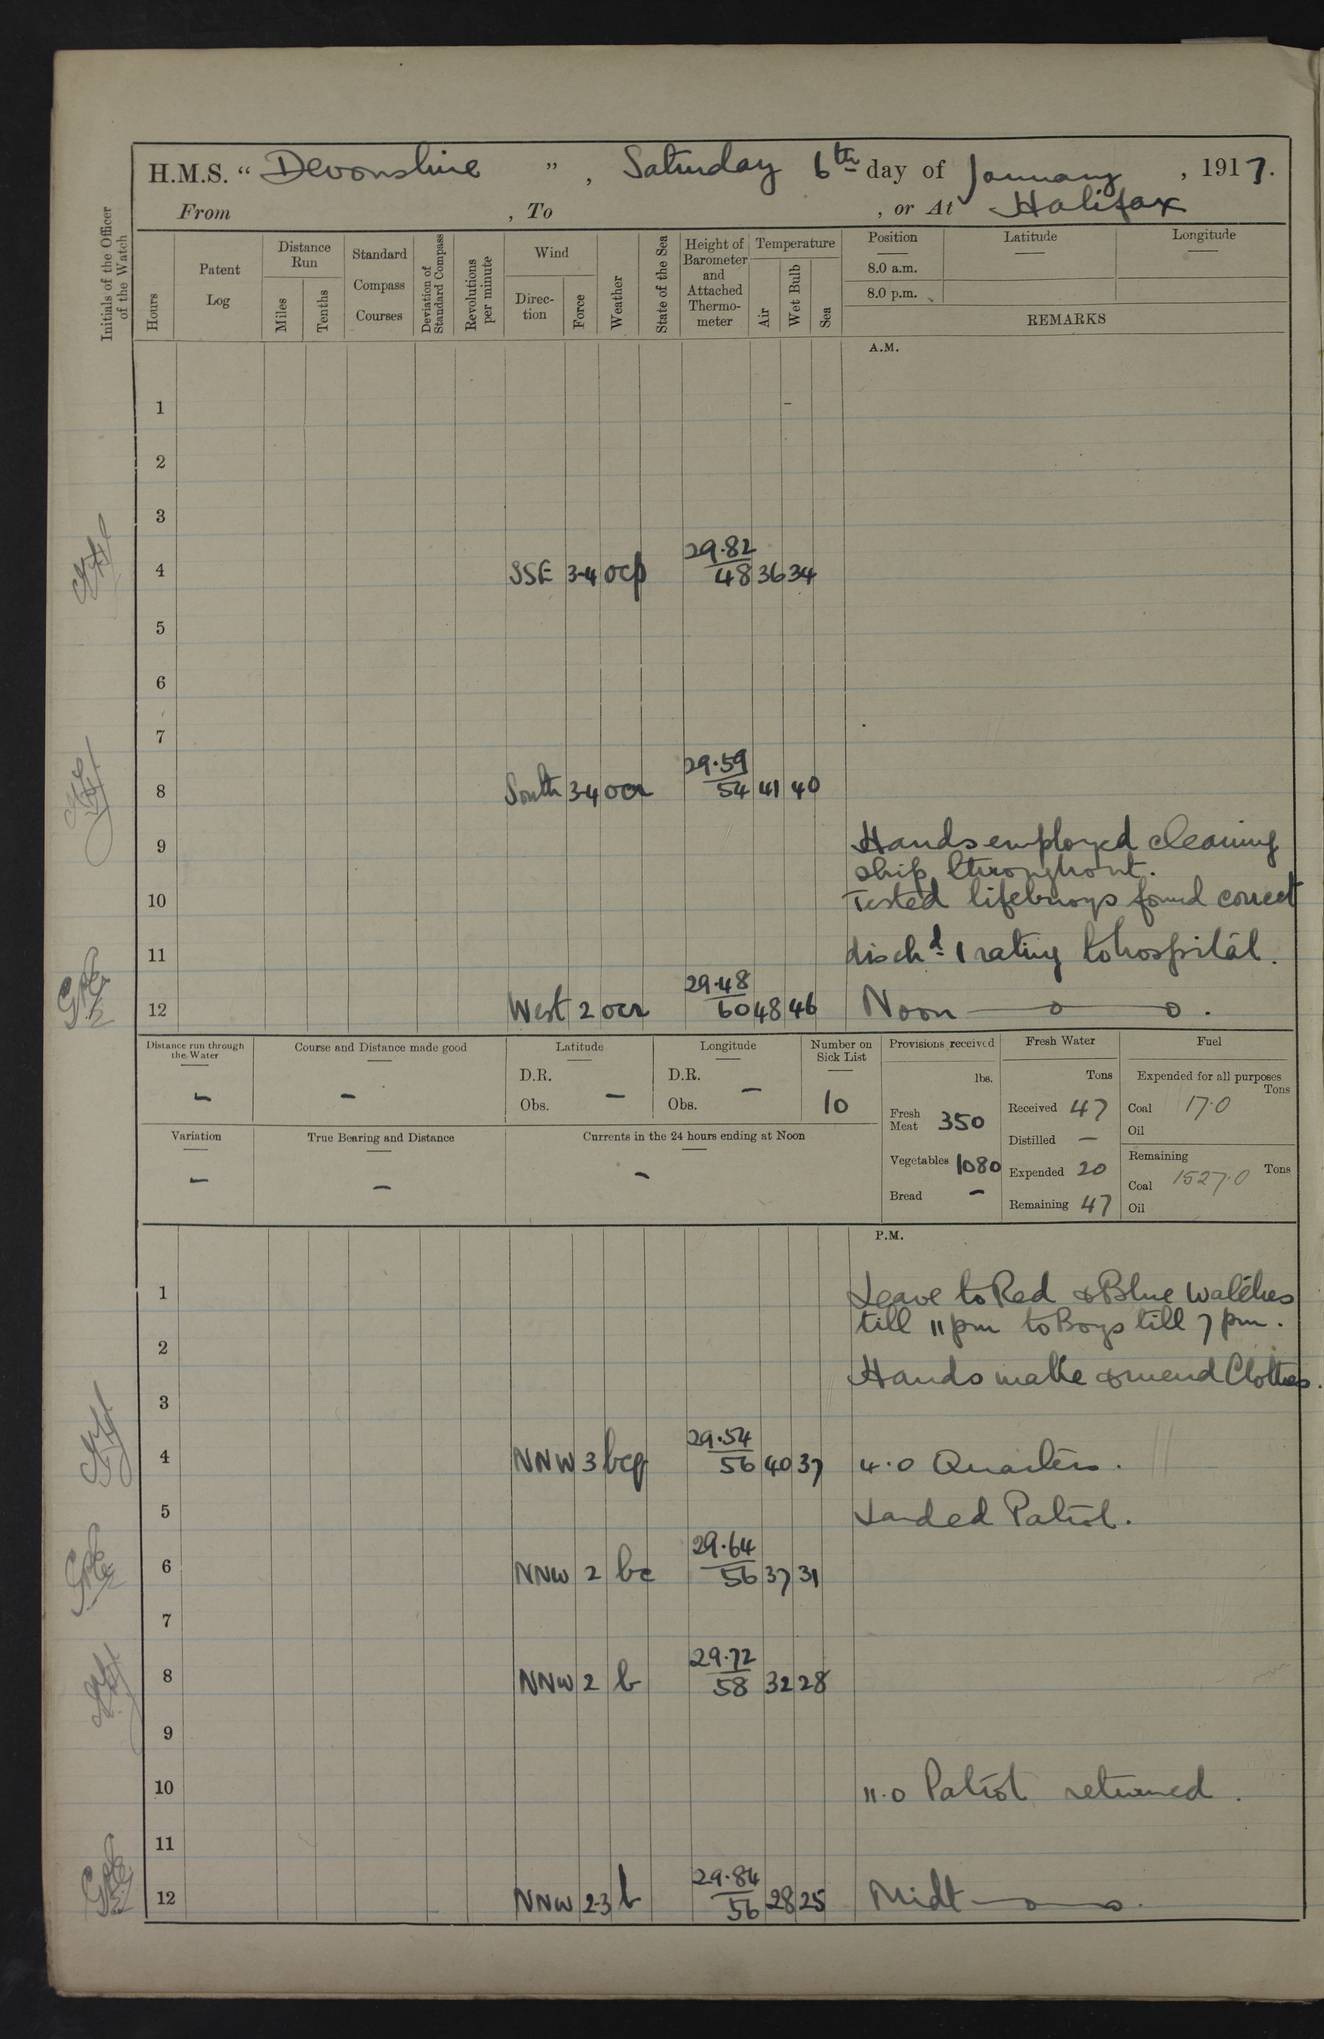 H.M.S. “ Devonshire ”, Saturday 6th day of January, 1917.
From , To , or At Halifax
Initials of the Officer of the Watch
Hours
Patent Log
Distance Run
Miles
Tenths
Standard Compass Courses
Deviation of Standard Compass
Revolutions per minute
Wind
Direc-tion
Force
Weather
State of the Sea
Height of Barometer and Attached Thermo-meter
Temperature
Air
Wet Bulb
Sea
Position
Latitude
Longitude
8.0 a.m.
8.0 p.m.
REMARKS
A.M.
1
2
3
29.82
4 SSE 3-4 ocp 48 36 34
5
6
7
29.59
8 South 3-4 ocr 54 41 40
9 Hands employed cleaning
ship throughout.
10 Tested lifebuoys found correct
11 disch^d 1 rating to hospital.
29.48
12 West 2 ocr 60 48 46 Noon
Distance run through the Water
Course and Distance made good
Latitude
Longitude
Number on Sick List
Provisions received
Fresh Water
Fuel
D.R.
Obs. –
D.R.
Obs. –
10
lbs.
Fresh Meat 350
Vegetables 1080
Bread –
Tons
Received 47
Distilled –
Expended 20
Remaining 47
Expended for all purposes
Tons
Coal 17.0
Oil
Remaining
Tons
Coal 1527.0
Oil
Variation
True Bearing and Distance
Currents in the 24 hours ending at Noon
–
–
–
P.M.
1 Leave to Red & Blue Watches
till 11pm to Boys till 7pm.
2
Hands make & mend Clothes.
3
29.54
4 NNW 3 bcq 56 40 37 4.0 Quarters.
5 Landed Patrol.
29.64
6 NNW 2 bc 56 37 31
7
29.72
8 NNW 2 b 58 32 28
9
10 11.0 Patrol returned.
11
29.84
12 NNW 2-3 b 56 28 25 Midt